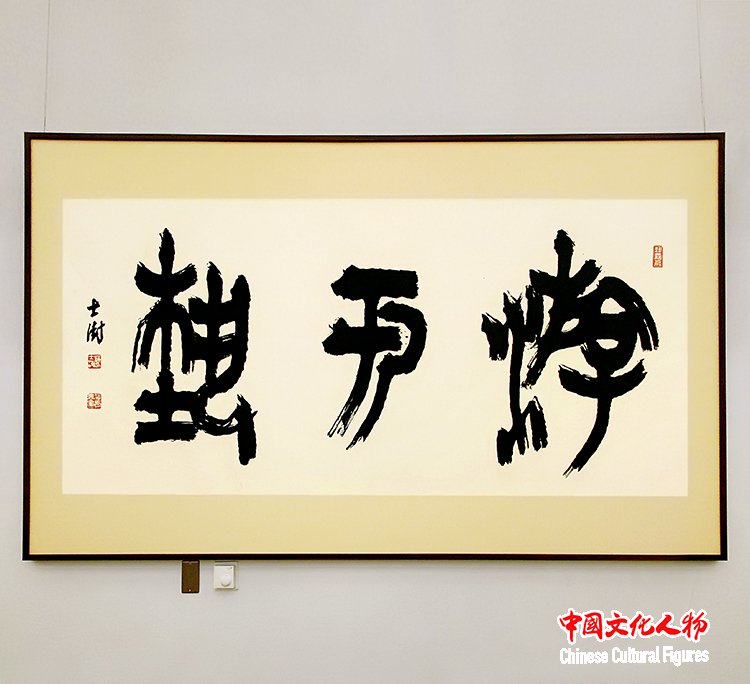 游于藝
士澍
中國文化人物
Chinese Cultural Figures